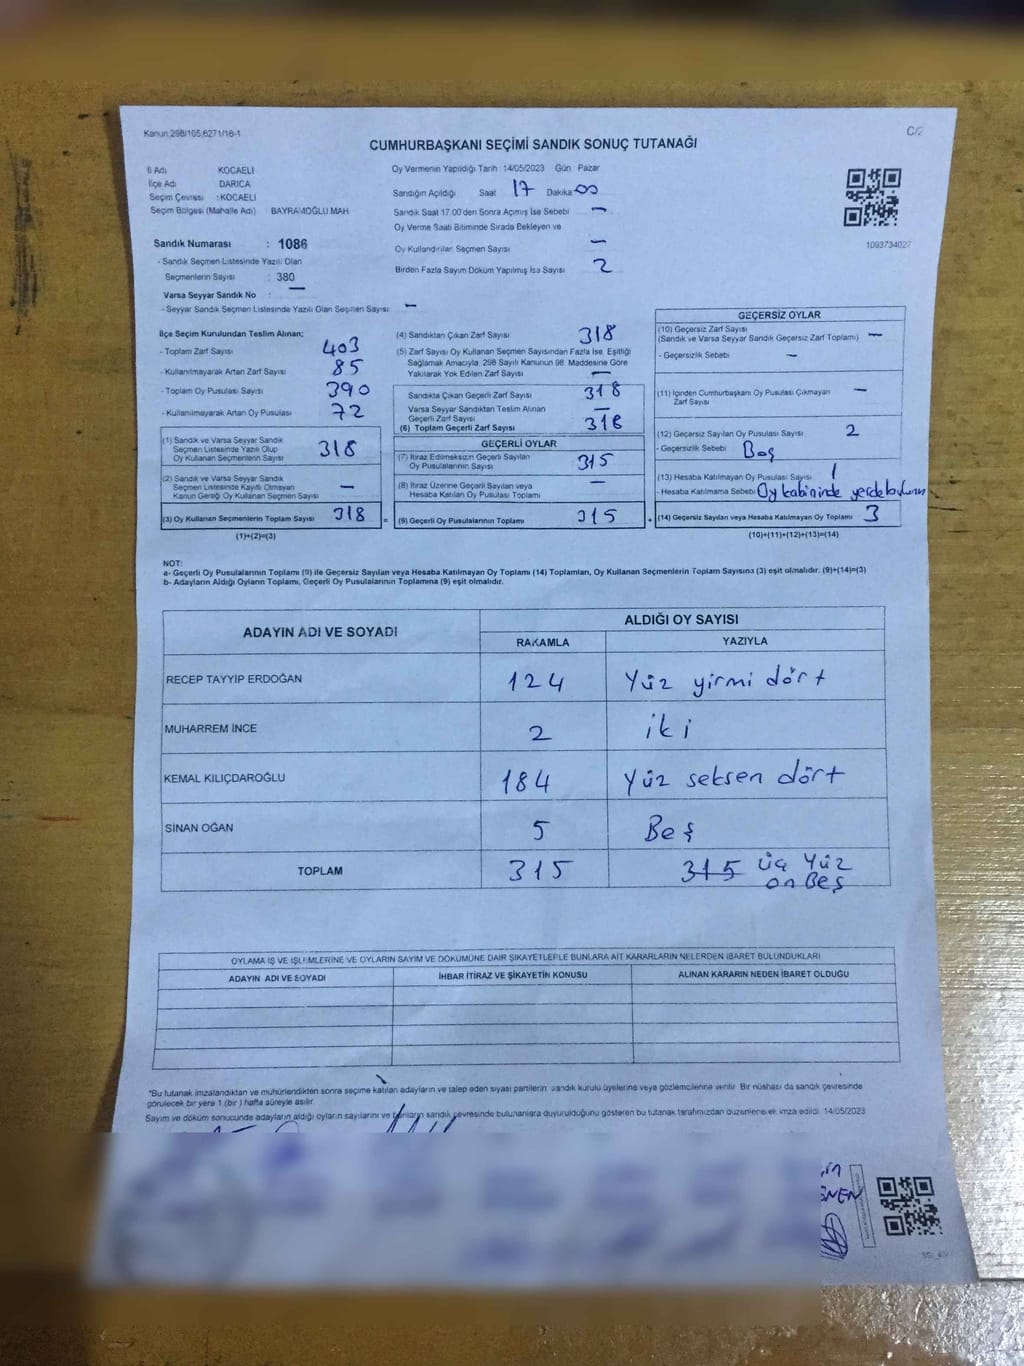 Kanun:298/105,6271/16-1
C/2
CUMHURBAŞKANI SEÇİMİ SANDIK SONUÇ TUTANAĞI
İl Adı KOCAELİ
İlçe Adı DARICA
Seçim Çevresi : KOCAELİ
Seçim Bölgesi (Mahalle Adı) BAYRAMOĞLU MAH
Sandık Numarası : 1086
- Sandık Seçmen Listesinde Yazılı Olan
Seçmenlerin Sayısı : 380
Varsa Seyyar Sandık No : —
- Seyyar Sandık Seçmen Listesinde Yazılı Olan Seçmen Sayısı: —
Oy Vermenin Yapıldığı Tarih 14/05/2023 Gün Pazar
Sandığın Açıldığı Saat 17 Dakika 00
Sandık Saat 17.00'den Sonra Açımış İse Sebebi —
Oy Verme Saati Bitiminde Sırada Bekleyen ve
Oy Kullandırılan Seçmen Sayısı —
Birden Fazla Sayım Döküm Yapılmış İse Sayısı 2
1093734027
İlçe Seçim Kurulundan Teslim Alınan;
- Toplam Zarf Sayısı 403
- Kullanılmayarak Artan Zarf Sayısı 85
- Toplam Oy Pusulası Sayısı 390
- Kullanılmayarak Artan Oy Pusulası 72
(1) Sandık ve Varsa Seyyar Sandık
Seçmen Listesinde Yazılı Olup
Oy Kullanan Seçmenlerin Sayısı 318
(2) Sandık ve Varsa Seyyar Sandık
Seçmen Listesinde Kayıtlı Olmayan
Kanun Gereği Oy Kullanan Seçmen Sayısı —
(3) Oy Kullanan Seçmenlerin Toplam Sayısı 318 =
(1)+(2)=(3)
(4) Sandıktan Çıkan Zarf Sayısı 318
(5) Zarf Sayısı Oy Kullanan Seçmen Sayısından Fazla İse, Eşitliği
Sağlamak Amacıyla, 298 Sayılı Kanunun 98. Maddesine Göre
Yakılarak Yok Edilen Zarf Sayısı —
Sandıkta Çıkan Geçerli Zarf Sayısı 318
Varsa Seyyar Sandıktan Teslim Alınan
Geçerli Zarf Sayısı —
(6) Toplam Geçerli Zarf Sayısı 318
GEÇERLİ OYLAR
(7) İtiraz Edilmeksizin Geçerli Sayılan
Oy Pusulalarının Sayısı 315
(8) İtiraz Üzerine Geçerli Sayılan veya
Hesaba Katılan Oy Pusulası Toplamı —
(9) Geçerli Oy Pusulalarının Toplamı 315 +
GEÇERSİZ OYLAR
(10) Geçersiz Zarf Sayısı
(Sandık ve Varsa Seyyar Sandık Geçersiz Zarf Toplamı) —
- Geçersizlik Sebebi —
(11) İçinden Cumhurbaşkanı Oy Pusulası Çıkmayan
Zarf Sayısı —
(12) Geçersiz Sayılan Oy Pusulası Sayısı 2
- Geçersizlik Sebebi Boş
(13) Hesaba Katılmayan Oy Pusulası Sayısı 1
- Hesaba Katılmama Sebebi Oy kabininde yerde
(14) Geçersiz Sayılan veya Hesaba Katılmayan Oy Toplamı 3
(10)+(11)+(12)+(13)=(14)
NOT:
a- Geçerli Oy Pusulalarının Toplamı (9) ile Geçersiz Sayılan veya Hesaba Katılmayan Oy Toplamı (14) Toplamları, Oy Kullanan Seçmenlerin Toplam Sayısına (3) eşit olmalıdır. (9)+(14)=(3)
b- Adayların Aldığı Oyların Toplamı, Geçerli Oy Pusulalarının Toplamına (9) eşit olmalıdır.
ADAYIN ADI VE SOYADI ALDIĞI OY SAYISI
RAKAMLA YAZIYLA
RECEP TAYYİP ERDOĞAN 124 Yüz yirmi dört
MUHARREM İNCE 2 iki
KEMAL KILIÇDAROĞLU 184 Yüz seksen dört
SİNAN OĞAN 5 Beş
TOPLAM 315 315 üç Yüz
on Beş
OYLAMA İŞ VE İŞLEMLERİNE VE OYLARIN SAYIM VE DÖKÜMÜNE DAİR ŞİKAYETLERLE BUNLARA AİT KARARLARIN NELERDEN İBARET BULUNDUKLARI
ADAYIN ADI VE SOYADI İHBAR İTİRAZ VE ŞİKAYETİN KONUSU ALINAN KARARIN NEDEN İBARET OLDUĞU
*Bu tutanak imzalandıktan ve mühürlendikten sonra seçime katılan adayların ve talep eden siyasi partilerin sandık kurulu üyelerine veya gözlemcilerine verilir. Bir nüshası da sandık çevresinde
görülecek bir yere 1 (bir) hafta süreyle asılır.
Sayım ve döküm sonucunda adayların aldığı oyların sayılarını ve bunların sandık çevresinde bulunanlara duyurulduğunu gösteren bu tutanak tarafımızdan düzenlenerek imza edildi. 14/05/2023